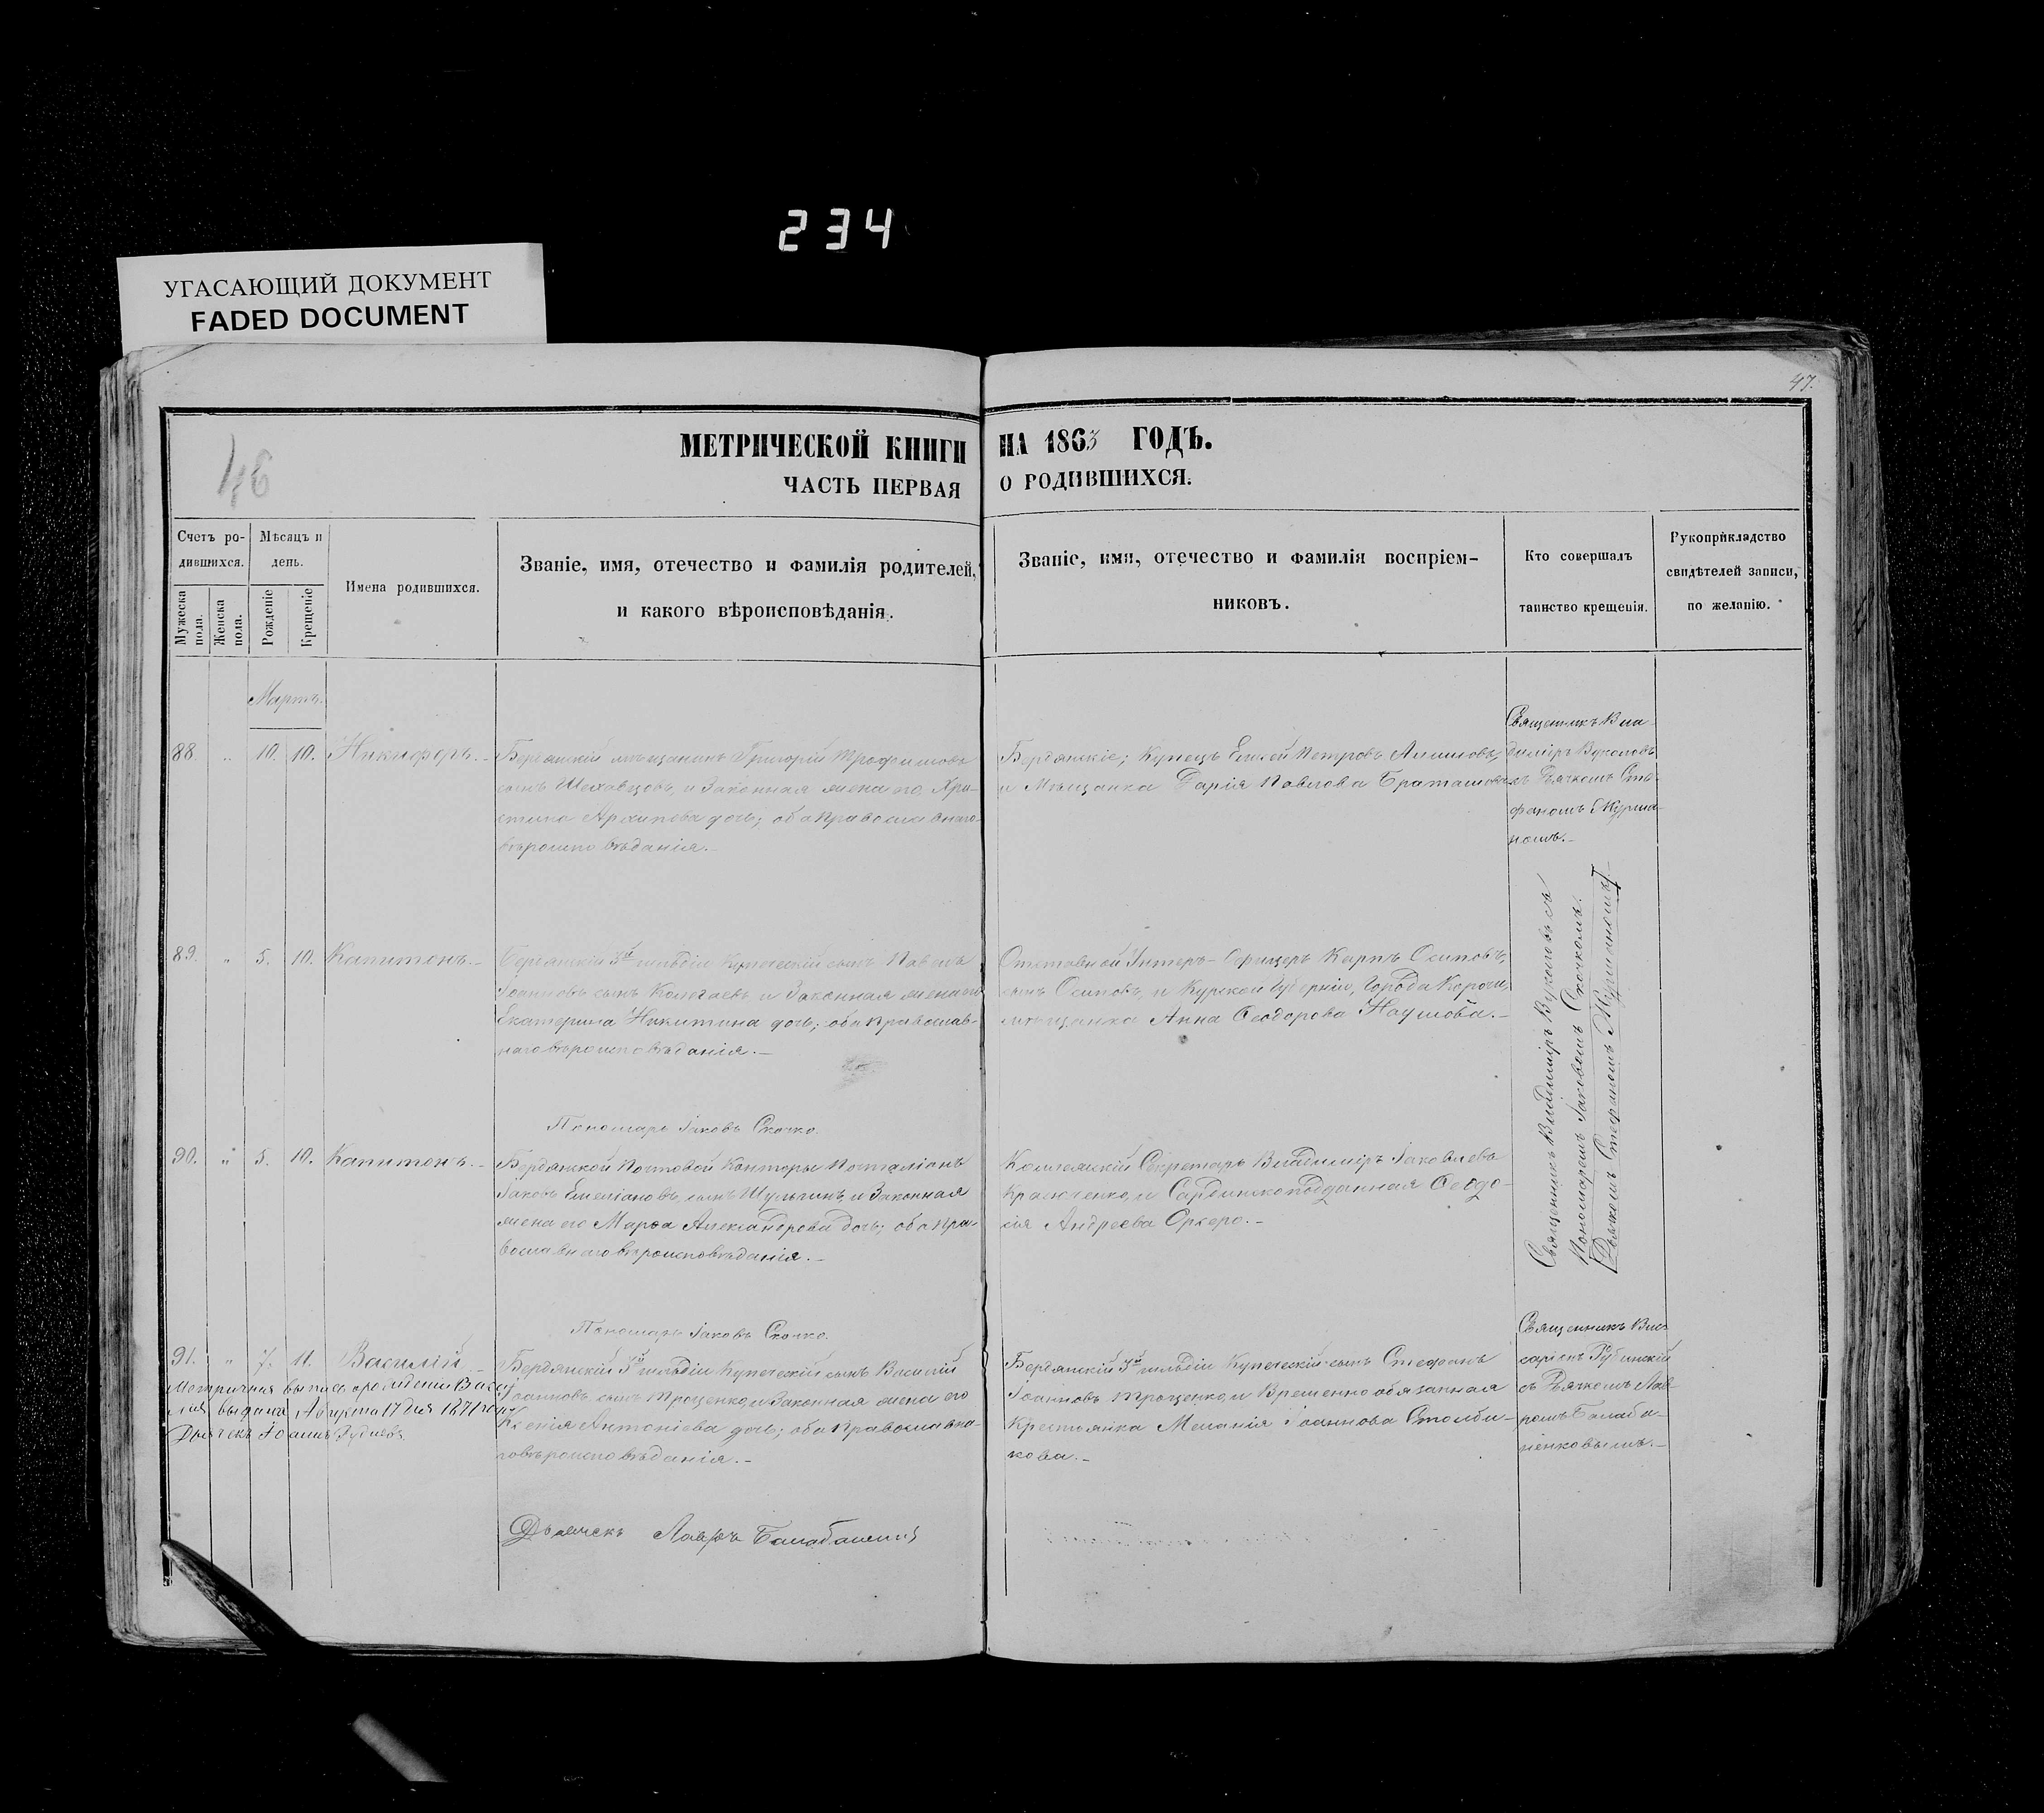 234
УГАСАЮЩИЙ ДОКУМЕНТ
FADED DOCUMENT
47.
46
МЕТРИЧЕСКОЙ КНИГИ НА 1863 ГОДЪ.
ЧАСТЬ ПЕРВАЯ О РОДИВШИХСЯ.
Счетъ ро-
дившихся.
Мужеска пола.
Женска пола.
Мѣсяцъ и
день.
Рожденіе
Крещеніе
Имена родившихся.
Званіе, имя, отечество и фамилія родителей,
и какого вѣроисповѣданія.
Званіе, имя, отечество и фамилія воспріем-
никовъ.
Кто совершалъ
таинство крещенія.
Рукоприкладство
свидѣтелей записи,
по желанію.
Мартъ.
88. " 10. 10. Никифоръ.
Бердянскій мѣщанинъ Григорій Трофимовъ
сынъ Шеховцовъ, и Законная жена его Хри-
стина Архипова дочь; оба православнаго
вѣроисповѣданія.
Бердянскіе; Купецъ Петровъ
и Мѣщанка Дарія Павлова
Священникъ Вла-
диміръ Вуколовъ
съ Дьячкомъ Сте-
фаномъ Журма-
номъ.
89. " 5. 10. Капитонъ.
Бердянскій 3й гильдіи Купеческій сынъ Павелъ
Іоанновъ сынъ Колегаевъ и Законная жена его
Екатерина Никитина дочь; оба православ-
наго вѣроисповѣданія.
Пономарь Іаковъ Скочко.
Отставной Унтеръ-Офицеръ Карпъ Осиповъ,
сынъ Осиповъ, и Курской Губерніи, Города Корочи,
мѣщанка Анна Ѳеодорова Наумова.
Священникъ Владиміръ Вуколовъ съ
Пономаремъ Іаковомъ Скочкомъ.
Дьячкомъ Стефаномъ Журманомъ
90. " 5. 10. Капитонъ.
Бердянской Почтовой Конторы Почталіонъ
Іаковъ Емеліановъ сынъ Шульгинъ и Законная
жена его Марѳа Александрова дочь; оба пра-
вославнаго вѣроисповѣданія.
Пономарь Іаковъ Скочко.
Коллежскій Секретарь Владиміръ Іаковлевъ
и Сардинскоподданная Ѳеодо-
сія Андреева
91. " 7. 11. Василій
Метричная выпись о рожденіи Васи-
лія выдана Августа 17 дня 1871 года
Дьячекъ Іоаннъ
Бердянскій 3й гильдіи Купеческій сынъ Василій
Іоанновъ сынъ Троценко, и Законная жена его
Ксенія Антоніева дочь; оба Православна-
го вѣроисповѣданія.
Дьячекъ Лавръ
Бердянскій 3й гильдіи Купеческій сынъ Стефанъ
Іоанновъ Троценко, и Временно обязанная
Крестьянка Меланія Іоаннова Столби-
кова.
Священникъ Вис-
саріонъ Рубинскій
съ Дьячкомъ Лав-
ромъ Балаба-
ненковымъ.